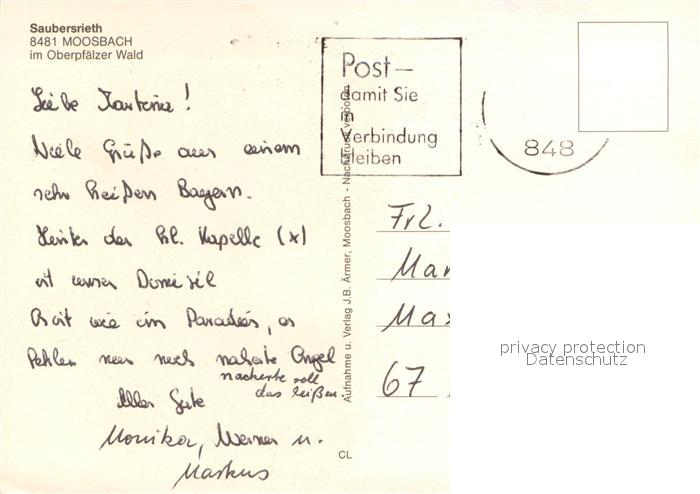 Saubersrieth
8481 MOOSBACH
im Oberpfälzer Wald
Liebe
Viele Grüße aus einem
sehr heißen Bayern.
Hinter der kl. Kapelle (x)
ist unser Domizil
Es ist wie im Paradies, es
fehlen nur noch nakerte Engel
nackerte soll
das heißen.
Alles Gute
Monika, Werner u.
Markus
Post-
damit Sie
in
Verbindung
bleiben
848
Aufnahme u. Verlag J.B. Ärmer, Moosbach - Nachdruck verboten
CL
Frl.
Mar
Max
67
privacy protection
Datenschutz